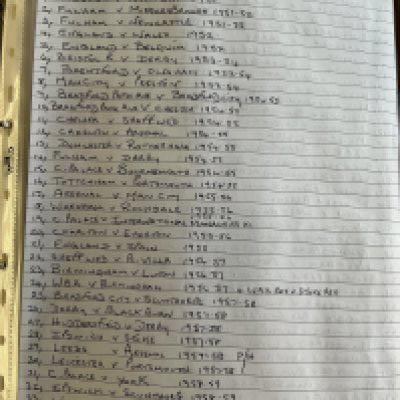 2, FULHAM v MIDDLESBROUGH 1951-52
3, FULHAM v NEWCASTLE 1951-52
4, ENGLAND v WALES 1952
5, ENGLAND v BELGIUM 1952
6, BRISTOL R v DERBY 1953-54
7, BRENTFORD v OLDHAM 1953-54
8, MAN CITY v PRESTON 1953-54
9, BRADFORD PARK AVE v BRADFORD CITY 1954-55
BRADFORD PARK AVE v CHESTER 1954-55
11, CHELSEA v SHEFF WED 1954-55
12, CHARLTON v ARSENAL 1954-55
13, DONCASTER v ROTHERHAM 1954-55
14, FULHAM v DERBY 1954-55
15, C. PALACE v BOURNEMOUTH 1954-55
16, TOTTENHAM v PORTSMOUTH 1954-55
17, ARSENAL v MAN CITY 1955-56
18, v ROCHDALE 1955-56
19, C. PALACE v INTERNATIONAL
20, CHARLTON v EVERTON 1955-56
21, ENGLAND v SPAIN 1955
22, SHEFF WED v A. VILLA 1956-57
23, BIRMINGHAM v LUTON 1956-57
24, WBA v BIRMINGHAM 1956-57
25, BRADFORD CITY v SCUNTHORPE 1957-58
26, DERBY v BLACKBURN 1957-58
27, HUDDERSFIELD v DERBY 1957-58
28, IPSWICH v STOKE 1957-58
29, LEEDS v ARSENAL 1957-58
30, LEICESTER v PORTSMOUTH 1957-58
31, C PALACE v YORK 1958-59
32, IPSWICH v 1958-59